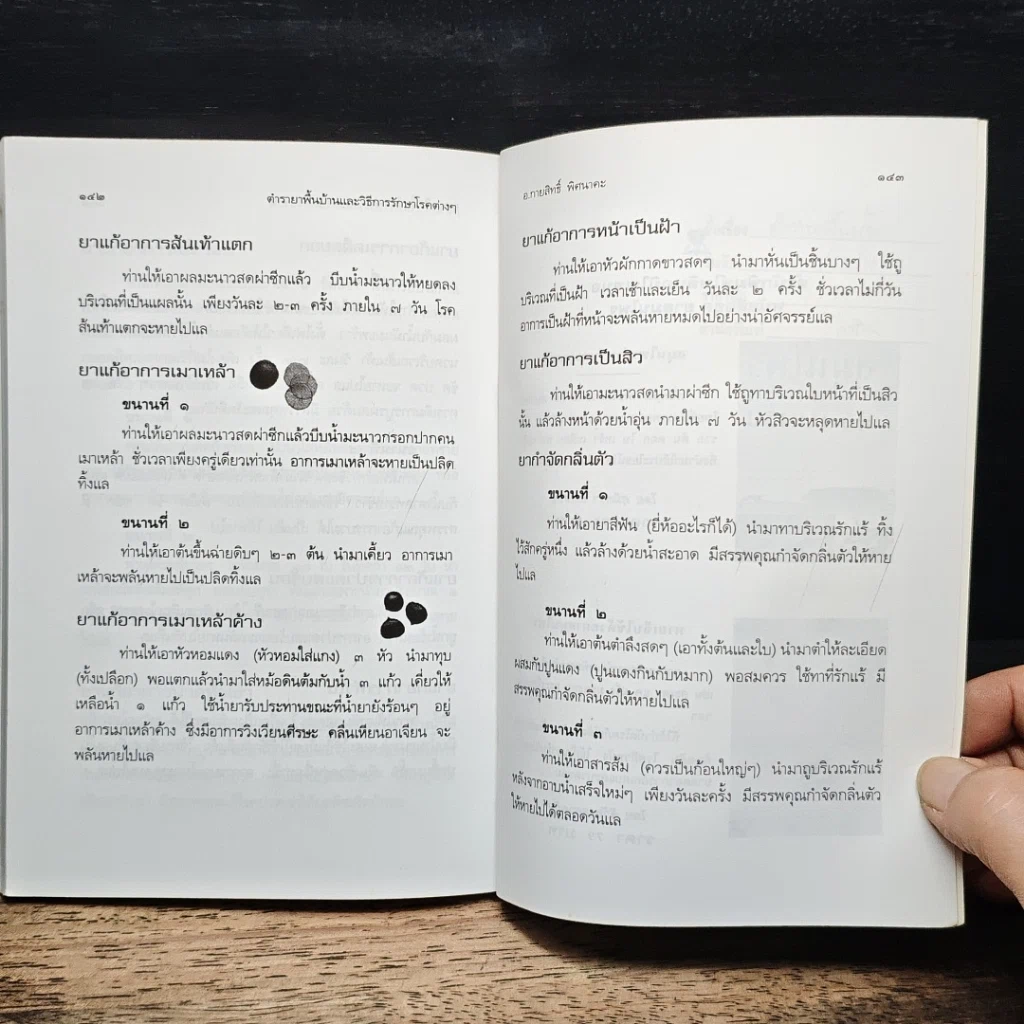 ๑๔๒
ตำรายาพื้นบ้านและวิธีการรักษาโรคต่างๆ
ยาแก้อาการส้นเท้าแตก
ท่านให้เอาผลมะนาวสดผ่าซีกแล้ว บีบน้ำมะนาวให้หยดลง
บริเวณที่เป็นแผลนั้น เพียงวันละ ๒-๓ ครั้ง ภายใน ๗ วัน โรค
ส้นเท้าแตกจะหายไปแล
ยาแก้อาการเมาเหล้า
ขนานที่ ๑
ท่านให้เอาผลมะนาวสดผ่าซีกแล้วบีบน้ำมะนาวกรอกปากคน
เมาเหล้า ชั่วเวลาเพียงครู่เดียวเท่านั้น อาการเมาเหล้าจะหายเป็นปลิด
ทิ้งแล
ขนานที่ ๒
ท่านให้เอาต้นขึ้นฉ่ายดิบๆ ๒-๓ ต้น นำมาเคี้ยว อาการเมา
เหล้าจะพลันหายไปเป็นปลิดทิ้งแล
ยาแก้อาการเมาเหล้าค้าง
ท่านให้เอาหัวหอมแดง (หัวหอมใส่แกง) ๓ หัว นำมาทุบ
(ทั้งเปลือก) พอแตกแล้วนำมาใส่หม้อดินต้มกับน้ำ ๓ แก้ว เคี่ยวให้
เหลือน้ำ ๑ แก้ว ใช้น้ำยารับประทานขณะที่น้ำยายังร้อนๆ อยู่
อาการเมาเหล้าค้าง ซึ่งมีอาการวิงเวียนศีรษะ คลื่นเหียนอาเจียน จะ
พลันหายไปแล
อ.กายสิทธิ์ พิศนาคะ
๑๔๓
ยาแก้อาการหน้าเป็นฝ้า
ท่านให้เอาหัวผักกาดขาวสดๆ นำมาหั่นเป็นชิ้นบางๆ ใช้ถู
บริเวณที่เป็นฝ้า เวลาเช้าและเย็น วันละ ๒ ครั้ง ชั่วเวลาไม่กี่วัน
อาการเป็นฝ้าที่หน้าจะพลันหายหมดไปอย่างน่าอัศจรรย์แล
ยาแก้อาการเป็นสิว
ท่านให้เอามะนาวสดนำมาผ่าซีก ใช้ถูทาบริเวณใบหน้าที่เป็นสิว
นั้น แล้วล้างหน้าด้วยน้ำอุ่น ภายใน ๗ วัน หัวสิวจะหลุดหายไปแล
ยากำจัดกลิ่นตัว
ขนานที่ ๑
ท่านให้เอายาสีฟัน (ยี่ห้ออะไรก็ได้) นำมาทาบริเวณรักแร้ ทิ้ง
ไว้สักครู่หนึ่ง แล้วล้างด้วยน้ำสะอาด มีสรรพคุณกำจัดกลิ่นตัวให้หาย
ไปแล
ขนานที่ ๒
ท่านให้เอาต้นตำลึงสดๆ (เอาทั้งต้นและใบ) นำมาตำให้ละเอียด
ผสมกับปูนแดง (ปูนแดงกินกับหมาก) พอสมควร ใช้ทาที่รักแร้ มี
สรรพคุณกำจัดกลิ่นตัวให้หายไปแล
ขนานที่ ๓
ท่านให้เอาสารส้ม (ควรเป็นก้อนใหญ่ๆ) นำมาถูบริเวณรักแร้
หลังจากอาบน้ำเสร็จใหม่ๆ เพียงวันละครั้ง มีสรรพคุณกำจัดกลิ่นตัว
ให้หายไปได้ตลอดวันแล